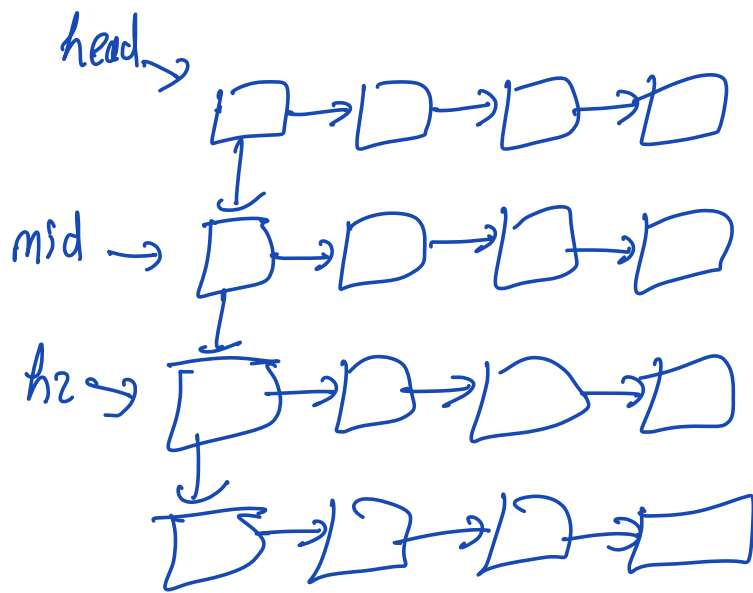 head
mid
h2